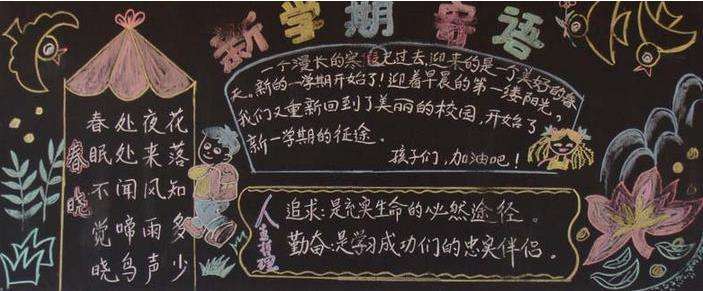 新学期寄语
春晓
春眠不觉晓
处处闻啼鸟
夜来风雨声
花落知多少
一个漫长的寒过去迎来的是一个美好的春
天。新的一学期开始了!迎着早晨的第一缕阳光,
我们又重新回到了美丽的校园,开始了
新一学期的征途.
孩子们,加油吧!
人生哲理
追求:是充实生命的必然途径。
勤奋:是学习成功们的忠实伴侣。